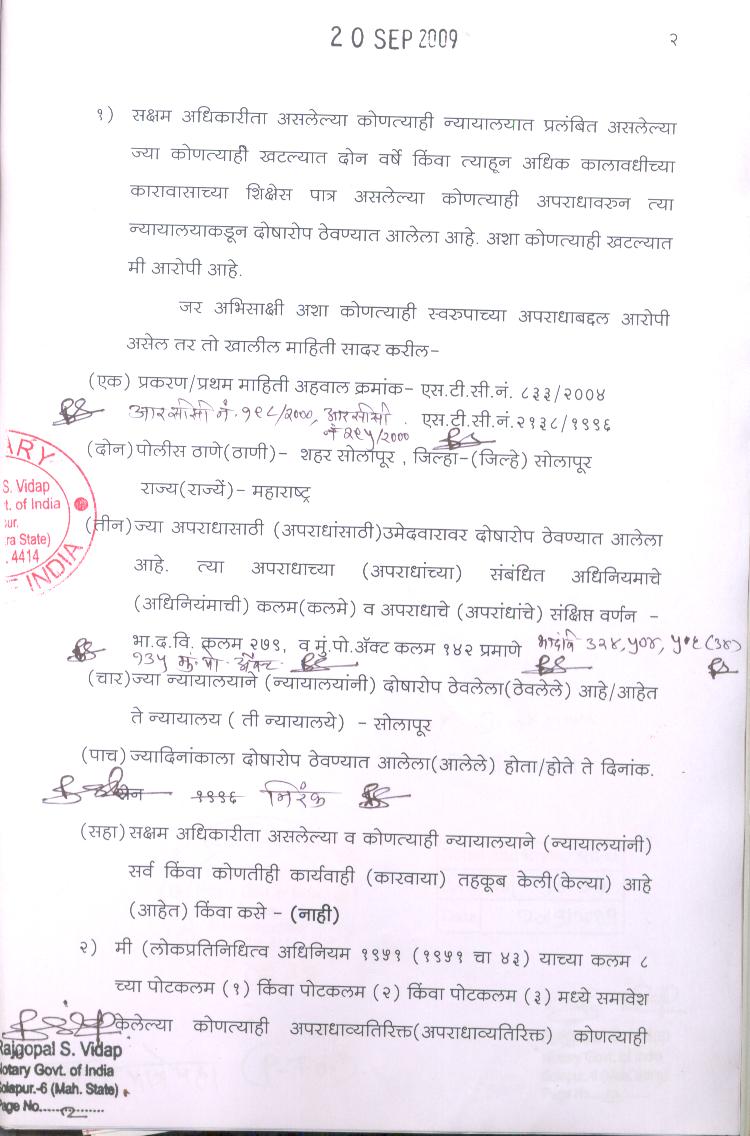 20 SEP 2009
२
१) सक्षम अधिकारीता असलेल्या कोणत्याही न्यायालयात प्रलंबित असलेल्या
ज्या कोणत्याही खटल्यात दोन वर्षे किंवा त्याहून अधिक कालावधीच्या
कारावासाच्या शिक्षेस पात्र असलेल्या कोणत्याही अपराधावरुन त्या
न्यायालयाकडून दोषारोप ठेवण्यात आलेला आहे. अशा कोणत्याही खटल्यात
मी आरोपी आहे.
जर अभिसाक्षी अशा कोणत्याही स्वरुपाच्या अपराधाबद्दल आरोपी
असेल तर तो खालील माहिती सादर करील-
(एक) प्रकरण/प्रथम माहिती अहवाल क्रमांक- एस.टी.सी.नं. ८३३/२००४
आरसीसी नं. १९८/2000, आरसीसी एस.टी.सी.नं.२१३८/१९९६
नं २९५/2000
(दोन) पोलीस ठाणे(ठाणी)- शहर सोलापूर , जिल्हा-(जिल्हे) सोलापूर
राज्य(राज्यें)- महाराष्ट्र
(तीन) ज्या अपराधासाठी (अपराधांसाठी)उमेदवारावर दोषारोप ठेवण्यात आलेला
आहे. त्या अपराधाच्या (अपराधांच्या) संबंधित अधिनियमाचे
(अधिनियंमाची) कलम(कलमे) व अपराधाचे (अपरांधांचे) संक्षिप्त वर्णन -
भा.द.वि. कलम २७९, व मुं.पो.ॲक्ट कलम १४२ प्रमाणे भादंवि ३२४, ५०४, ५०६ (३४)
१३५ मुं. पो. ॲक्ट
(चार) ज्या न्यायालयाने (न्यायालयांनी) दोषारोप ठेवलेला(ठेवलेले) आहे/आहेत
ते न्यायालय ( ती न्यायालये) - सोलापूर
(पाच) ज्यादिनांकाला दोषारोप ठेवण्यात आलेला(आलेले) होता/होते ते दिनांक.
१९९६ निरंक
(सहा) सक्षम अधिकारीता असलेल्या व कोणत्याही न्यायालयाने (न्यायालयांनी)
सर्व किंवा कोणतीही कार्यवाही (कारवाया) तहकूब केली(केल्या) आहे
(आहेत) किंवा कसे - (नाही)
२) मी (लोकप्रतिनिधित्व अधिनियम १९५१ (१९५१ चा ४३) याच्या कलम ८
च्या पोटकलम (१) किंवा पोटकलम (२) किंवा पोटकलम (३) मध्ये समावेश
केलेल्या कोणत्याही अपराधाव्यतिरिक्त(अपराधाव्यतिरिक्त) कोणत्याही
ARY
S. Vidap
t. of India
ur.
ra State)
. 4414
INDIA
Rajgopal S. Vidap
Notary Govt. of India
Solapur.-6 (Mah. State)
Page No.....२.......